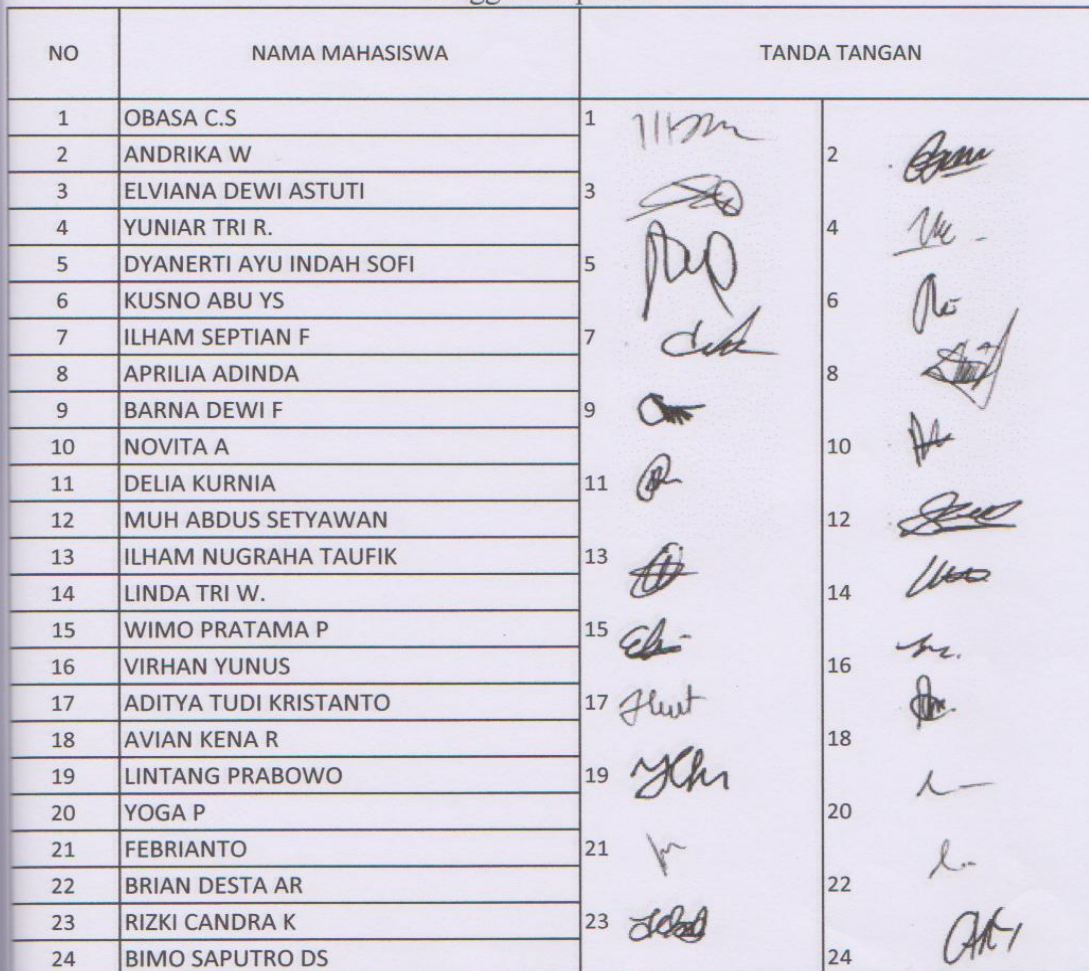 NO NAMA MAHASISWA TANDA TANGAN
1 OBASA C.S 1
2 ANDRIKA W 2
3 ELVIANA DEWI ASTUTI 3
4 YUNIAR TRI R. 4
5 DYANERTI AYU INDAH SOFI 5
6 KUSNO ABU YS 6
7 ILHAM SEPTIAN F 7
8 APRILIA ADINDA 8
9 BARNA DEWI F 9
10 NOVITA A 10
11 DELIA KURNIA 11
12 MUH ABDUS SETYAWAN 12
13 ILHAM NUGRAHA TAUFIK 13
14 LINDA TRI W. 14
15 WIMO PRATAMA P 15
16 VIRHAN YUNUS 16
17 ADITYA TUDI KRISTANTO 17
18 AVIAN KENA R 18
19 LINTANG PRABOWO 19
20 YOGA P 20
21 FEBRIANTO 21
22 BRIAN DESTA AR 22
23 RIZKI CANDRA K 23
24 BIMO SAPUTRO DS 24